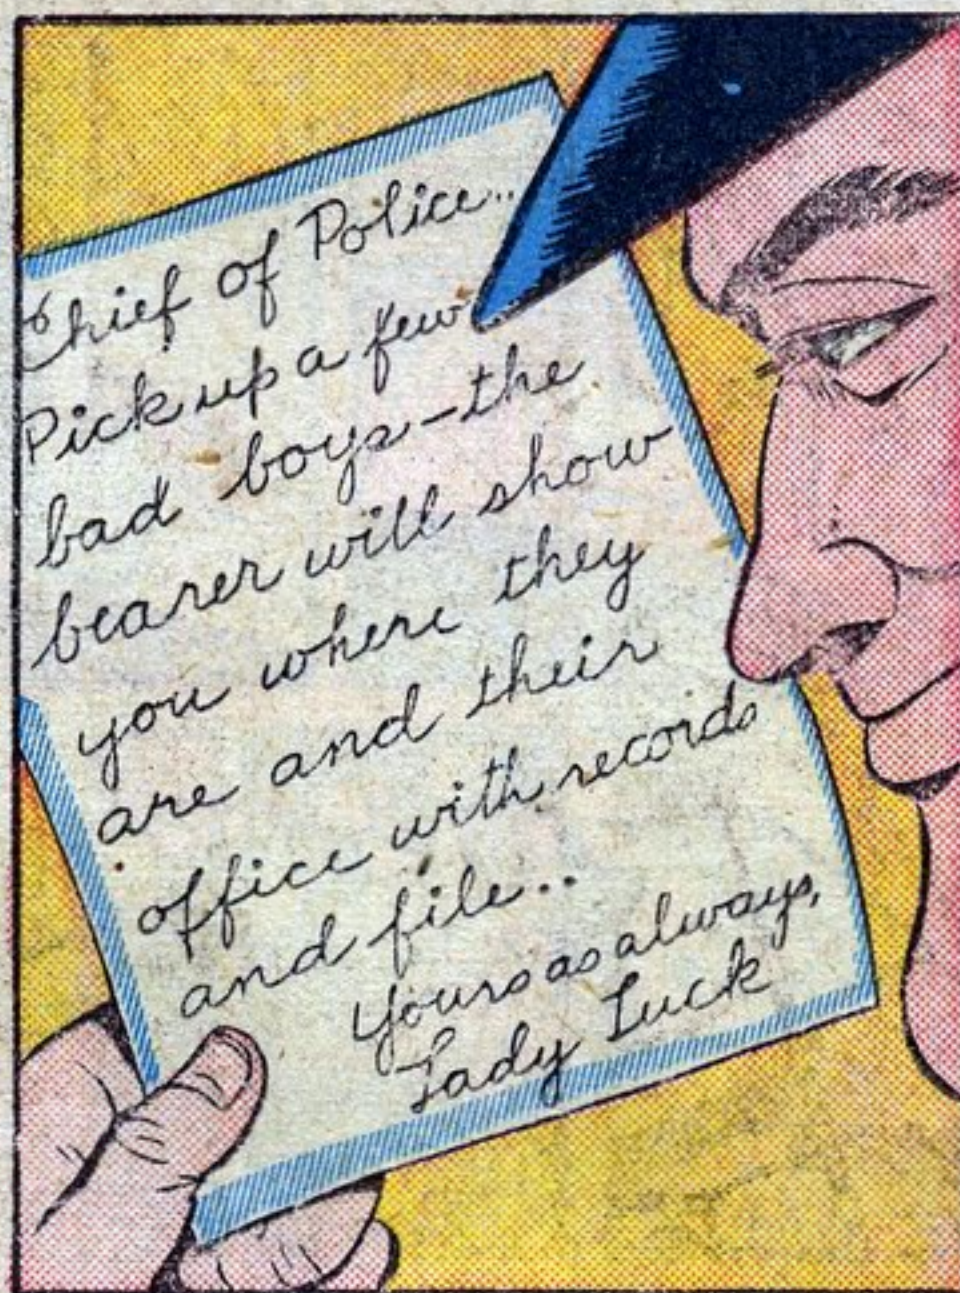 Chief of Police..
Pick up a few
bad boys-the
bearer will show
you where they
are and their
office with records
and file..
Yours as always,
Lady Luck